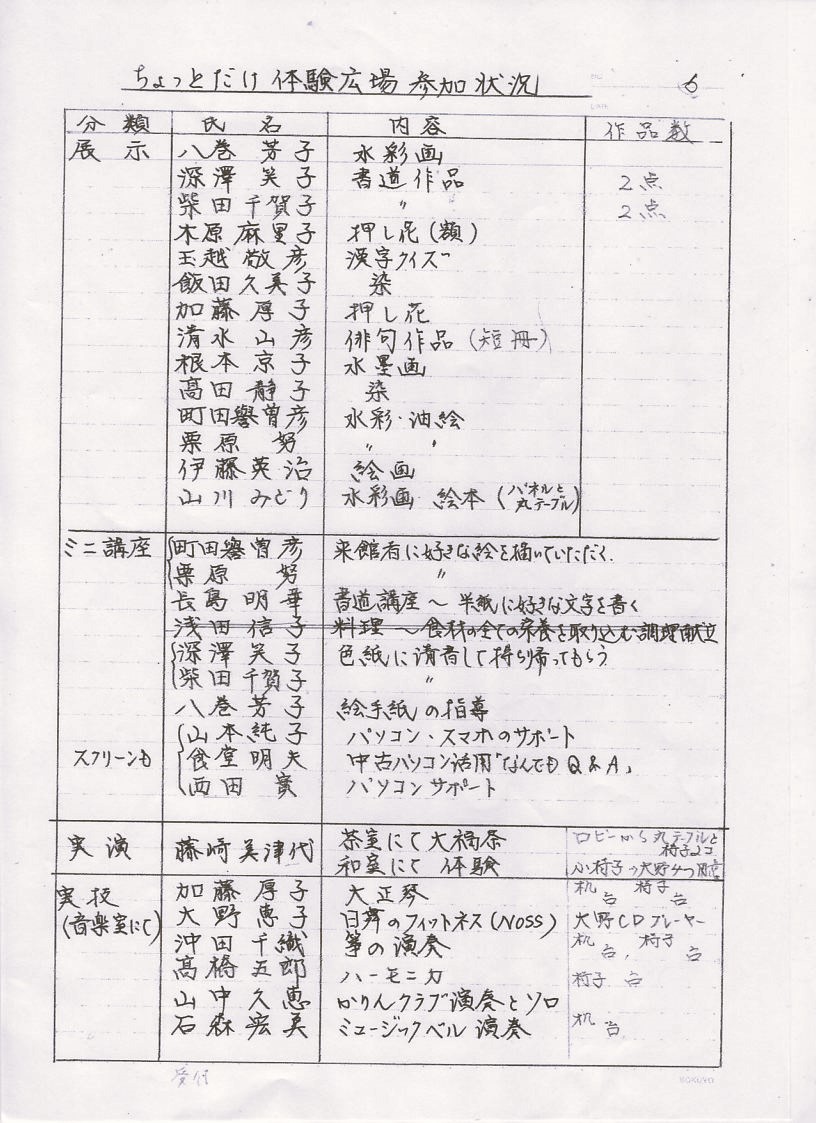 ちょっとだけ 体験広場 参加状況 6
分類 氏名 内容 作品数
展示 八巻 芳子 水彩画
深澤 笑子 書道作品 2点
柴田千賀子 〃 2点
木原麻里子 押し花(額)
玉越敬彦 漢字クイズ
飯田久美子 染
加藤厚子 押し花
清水山彦 俳句作品(短冊)
根本京子 水墨画
高田静子 染
町田譽曽彦 水彩・油絵
栗原 努 〃 〃
伊藤英治 絵画
山川みどり 水彩画 絵本(パネルと丸テーブル)
ミニ講座 町田譽曽彦 来館者に好きな絵を描いていただく.
栗原 努 〃
長島明華 書道講座〜半紙に好きな文字を書く
浅田信子 料理〜食材の全ての栄養を取り込む調理献立
深澤笑子 色紙に清書して持ち帰ってもらう
柴田千賀子 〃
八巻芳子 絵手紙の指導
山本純子 パソコン・スマホのサポート
スクリーンも 食堂明夫 中古パソコン活用「なんでもQ&A」
西田實 パソコンサポート
実演 藤崎美津代 茶室にて大福茶 ロビーから丸テーブルと
椅子2コ
和室にて 体験 小椅子→大野4つ用意
実技 加藤厚子 大正琴 机 台 椅子 台
(音楽室にて) 大野恵子 日舞のフィットネス(NOSS) 大野CDプレーヤー
沖田千織 箏の演奏 机 台, 椅子 台
高橋五郎 ハーモニカ 椅子 台
山中久恵 かりんクラブ演奏とソロ
石森宏美 ミュージックベル演奏 机 台
受付
KOKUYO